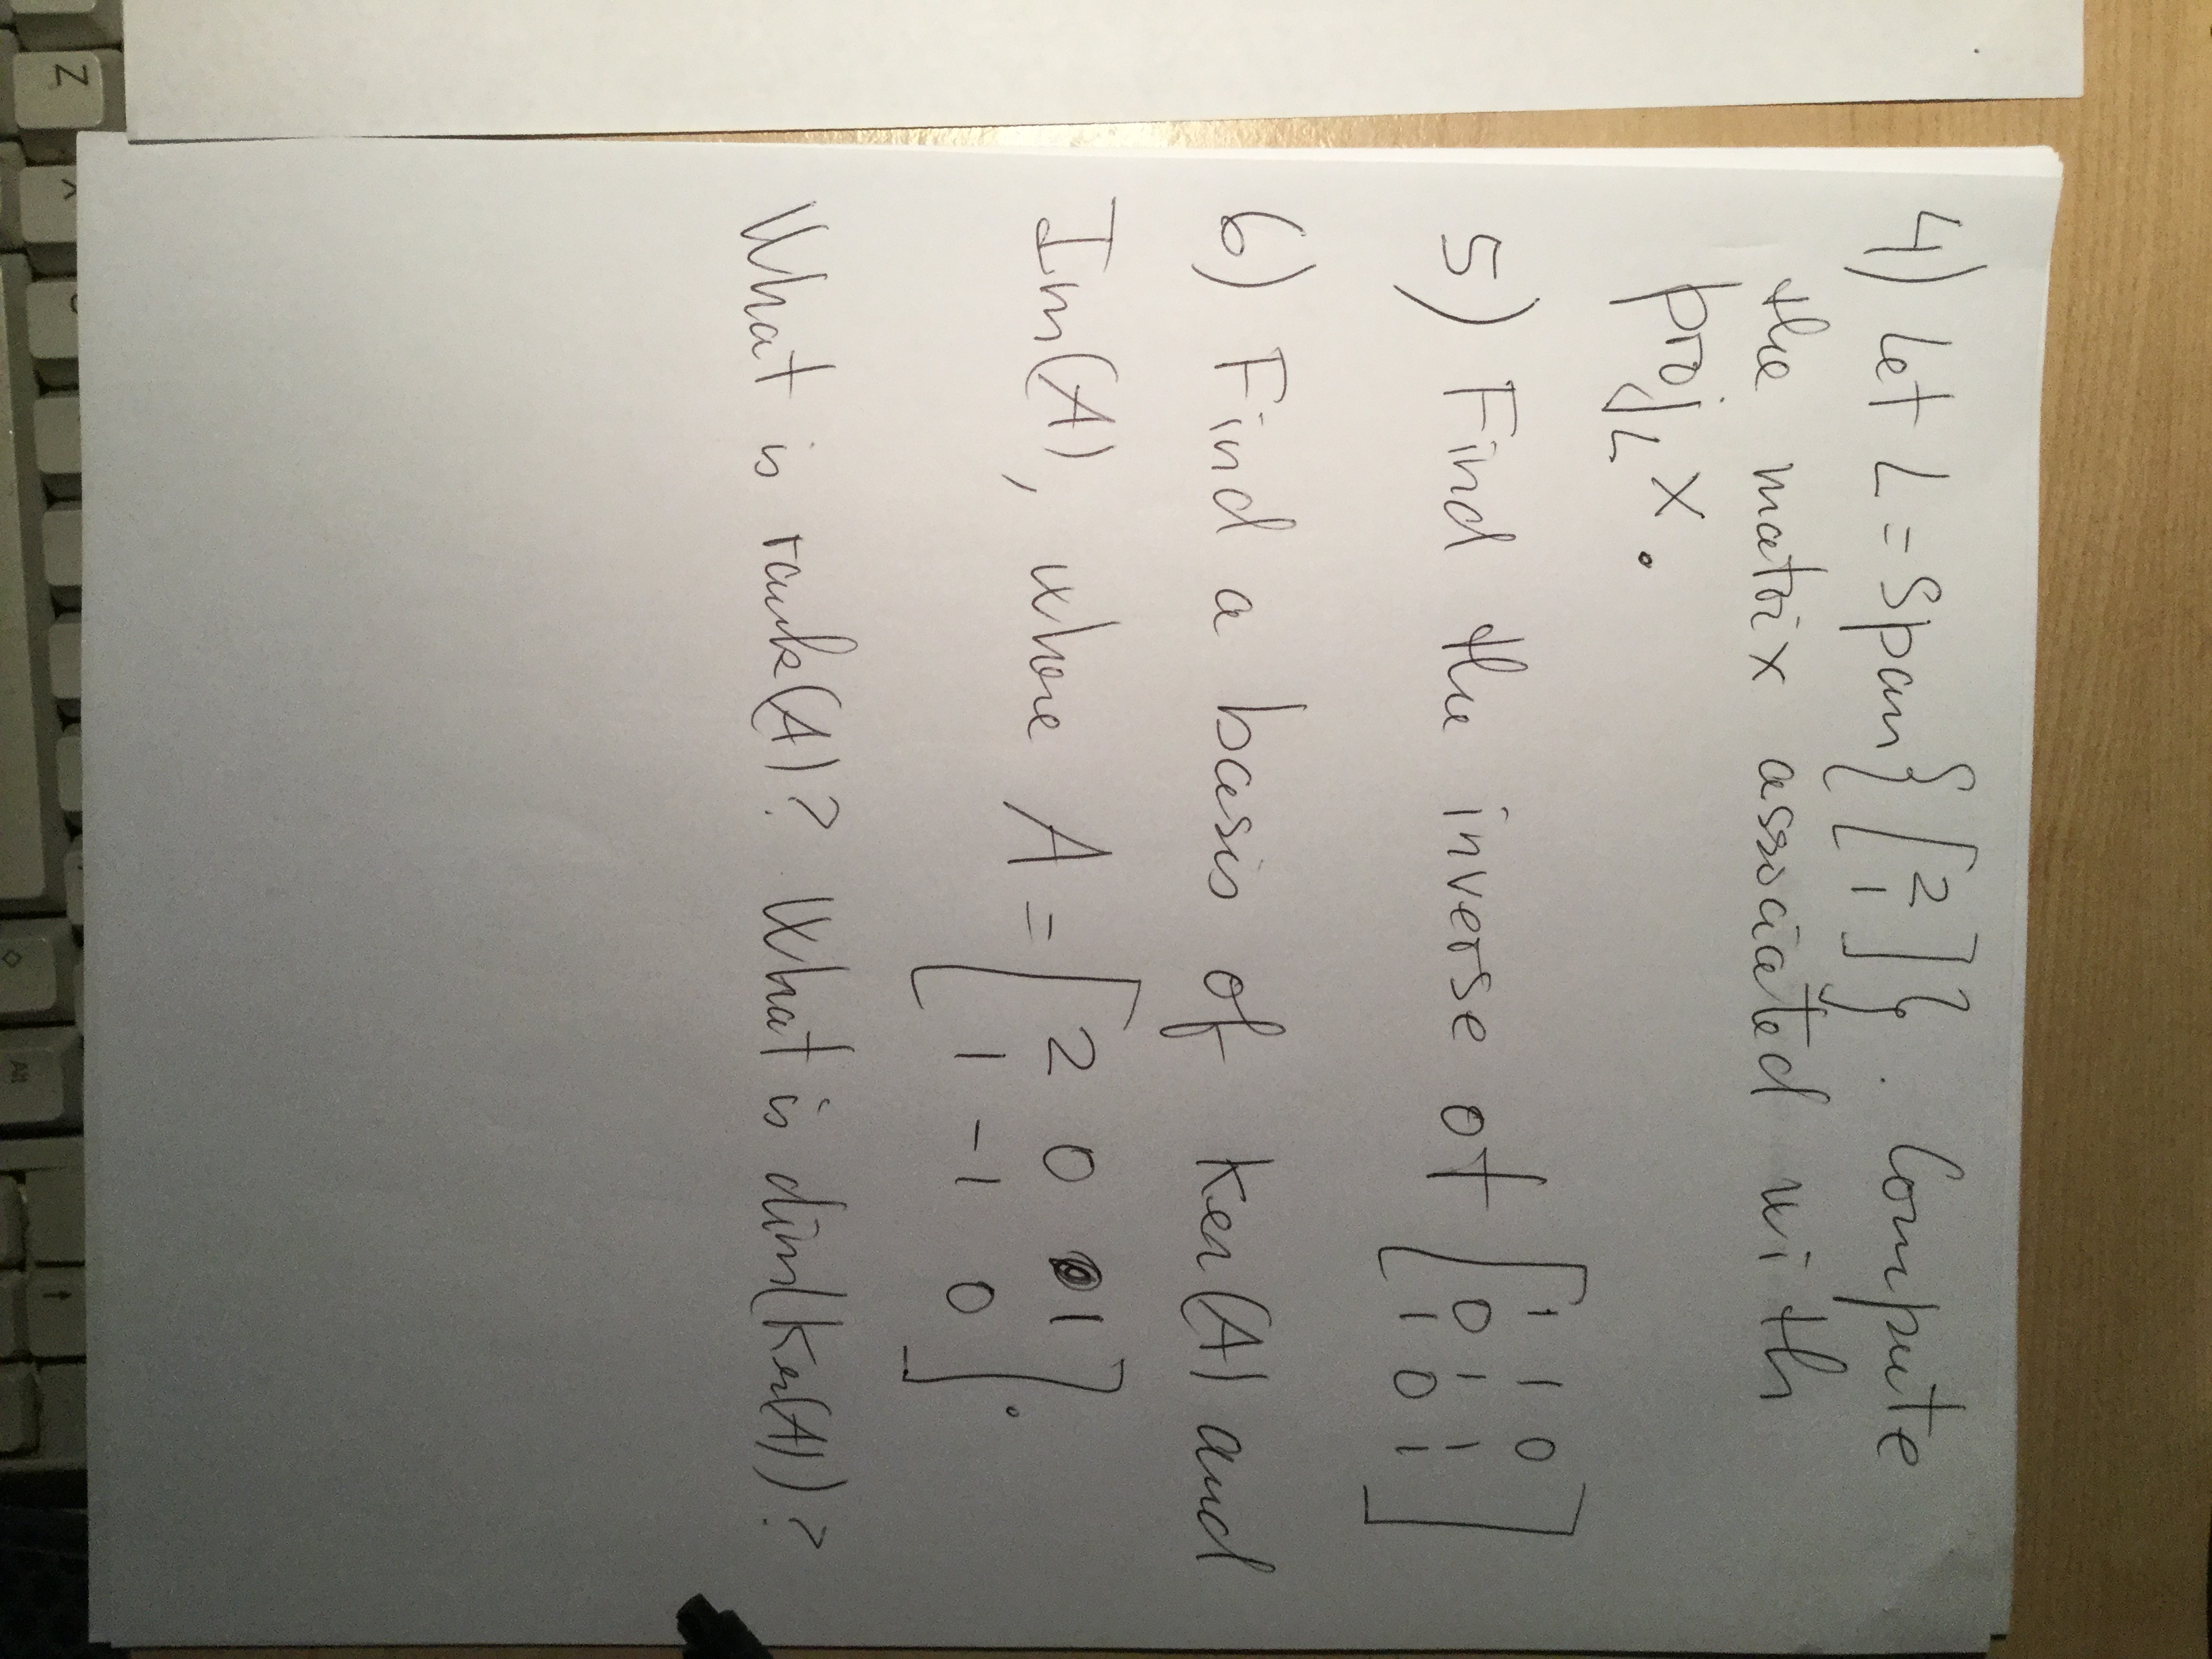 4) Let L = Span{[2
1]}. Compute
the matrix associated with
proj_L x.
5) Find the inverse of [1 1 0
0 1 1
1 0 1]
6) Find a basis of Ker(A) and
Im(A), where A = [2 0 1
1 -1 0].
What is rank(A)? What is dim(Ker(A))?
Z
Alt